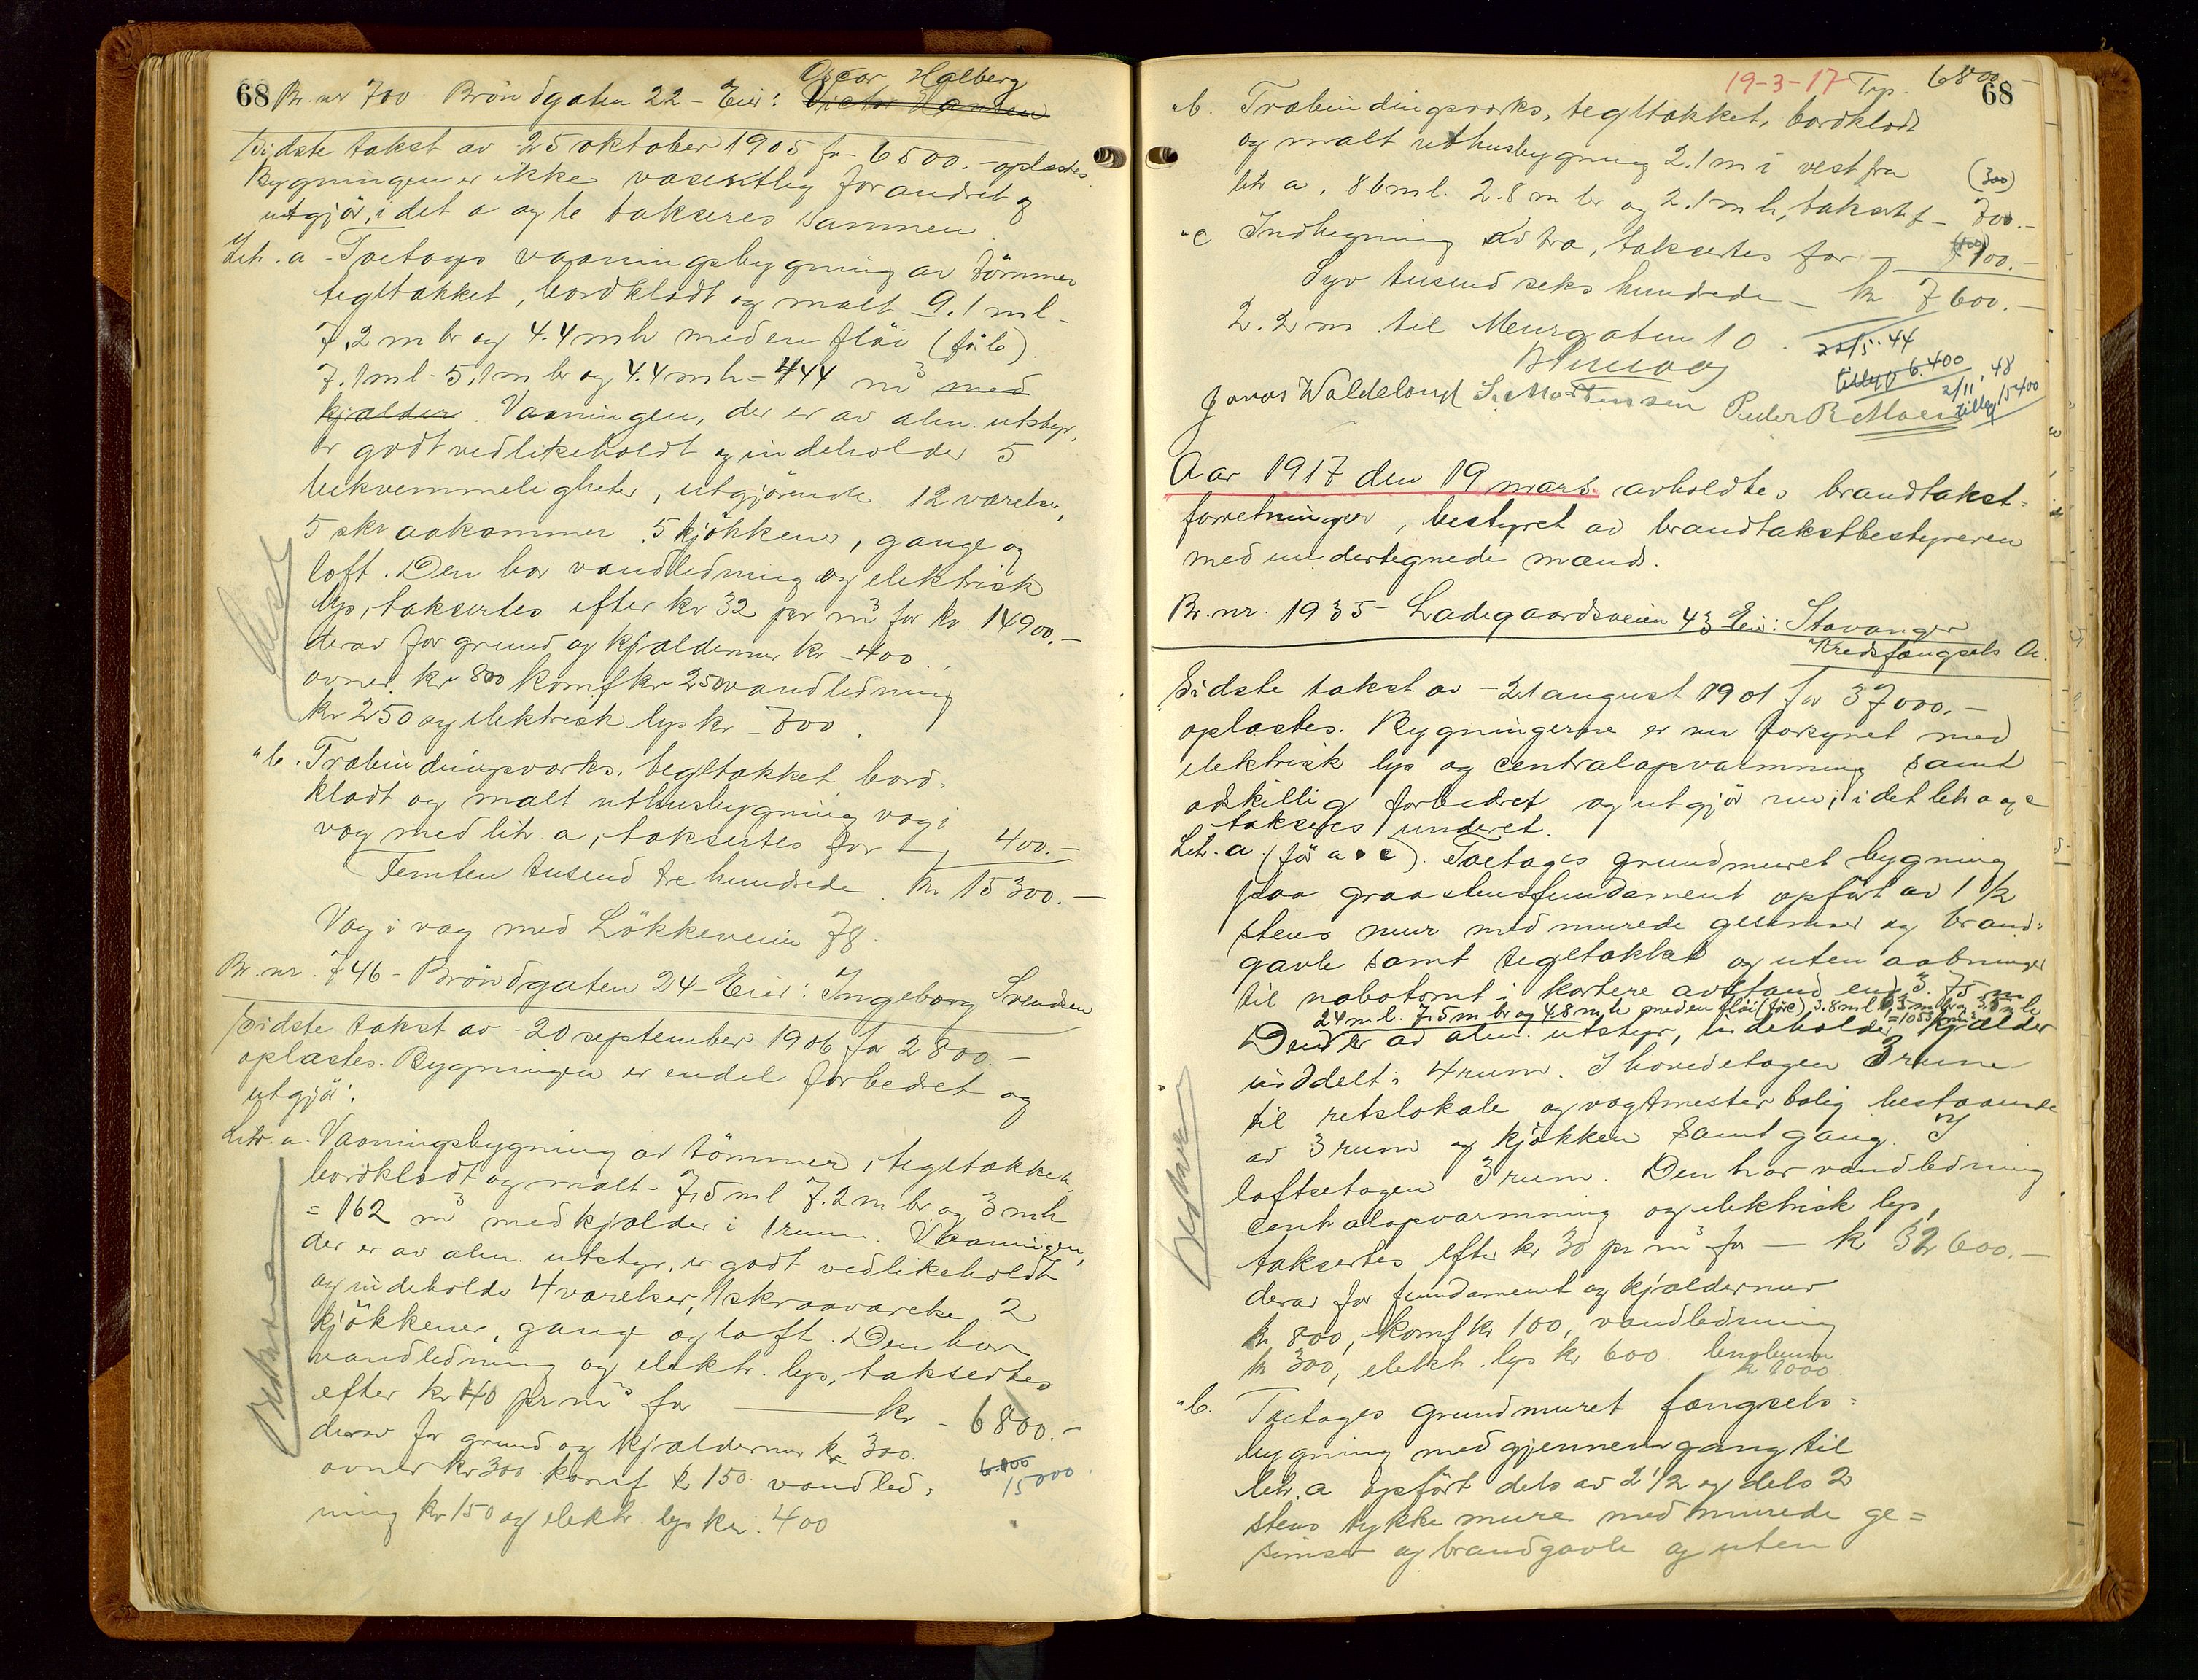 Oscar Halberg
68 Br. nr 700 Bröndgaten 22 - Eier: Victor Hansen
Sidste takst av 25 oktober 1905 for 6500.- oplæstes.
Bygningen er ikke væsentlig forandret og
utgjör, idet a og b takseres sammen
Litr. a - Toetages vaaningsbygning av tömmer
tegltækket, bordklædt og malt 9.1 m l -
7.2 m br og 4.4 m h med en flöi (för b).
7.1 m l - 5.1 m br og 4.4 m h = 444 m³ med
kjælder. Vaaningen, der er av alm. utstyr,
er godt vedlikeholdt og indeholder 5
bekvemmeligheter, utgjörende 12 værelser,
5 skraakammer, 5 kjökkener, gange og
loft. Den har vandledning og elektrisk
lys, taksertes efter kr 32 pr m³ for kr. 14900.-
derav for grund og kjældermur kr - 400.
ovner kr 800 komf kr 250 vandledning
kr 250 og elektrisk lys kr - 700.
" b. Træbindingsverks, tegltækket, bord-
klædt og malt uthusbygning væg i
væg med litr. a, taksertes for 400.-
Femten tusend tre hundrede kr 15300.-
Væg i væg med Lökkeveien 78.
Br. nr. 746 - Bröndgaten 24 - Eier: Ingeborg Svendsen
Sidste takst av - 20 september 1906 for 2800.-
oplæstes. Bygningen er endel forbedret og
utgjör:
Litr. a. Vaaningsbygning av tömmer, tegltækket,
bordklædt og malt - 7.5 m l 7.2 m br og 3 m h
= 162 m³ med kjælder i 1 rum. Vaaningen,
der er av alm. utstyr, er godt vedlikeholdt
og indeholder 4 værelser, 1 skraaværelse, 2
kjökkener, gange og loft. Den har
vandledning og elektr. lys, taksertes
efter kr 40 pr m³ for kr - 6800.-
derav for grund og kjældermur kr 300.
ovner kr 300 komf kr 150. vandled-
6.800
15000
ning kr 150 og elektr. lys kr. 400
19-3-17 Trp. 6800.-
68
" b. Træbindingsverks, tegltækket, bordklædt
og malt uthusbygning 2.1 m i vest fra
litr a, 8.6 m l. 2.8 m br og 2.1 m h, taksert f - 700.-
(300)
" c Indhegning av træ, taksertes for - 100.-
(400)
Syv tusend seks hundrede - kr 7600.-
2.2 m til Meurgaten 10.
22/5. 44
tillegg 6.400
2/11, 48
tillegg 15400
Jonas Waldeland S. Mortensen Peder R. Moe
Aar 1917 den 19 mars. avholdtes brandtakst-
forretninger, bestyret av brandtakstbestyreren
med undertegnede mænd.
Br. nr. 1935 - Ladegaardsveien 43 Eier: Stavanger
Kredsfængsels A.
Sidste takst av - 21 august 1901 for 37000.-
oplæstes. Bygningerne er nu forsynet med
elektrisk lys og centralopvarmning samt
adskillig forbedret og utgjör nu, idet litr a og c
takseres under et.
Litr. a (för a o c). Toetages grundmuret bygning
paa graastensfundament opfört av 1 1/2
stens mur med murede gesimser og brand-
gavle samt tegltækket og uten aabninger
til nabotomt i kortere avstand end 3.75 m
24 m l. 7.5 m br og 4.8 m h med en flöi (för c) 3.8 m l
Den er av alm. utstyr, indeholder kjælder
inddelt i 4 rum. I hovedetagen 3 rum
til retslokale og vagtmesterbolig bestaaende
av 3 rum og kjökken samt gang. I
loftsetagen 3 rum. Den har vandledning
centralopvarmning og elektrisk lys,
taksertes efter kr 30 pr m³ for - kr 32600.-
derav for fundament og kjældermur
kr 800, komf kr 100, vandledning
kr 300, elekt. lys kr 600.
kr 1000.
" b. Toetages grundmuret fængsels-
bygning med gjennemgang til
litr. a opfört dels av 2 1/2 og dels 2
stens tykke mure med murede ge-
simser og brandgavle og uten